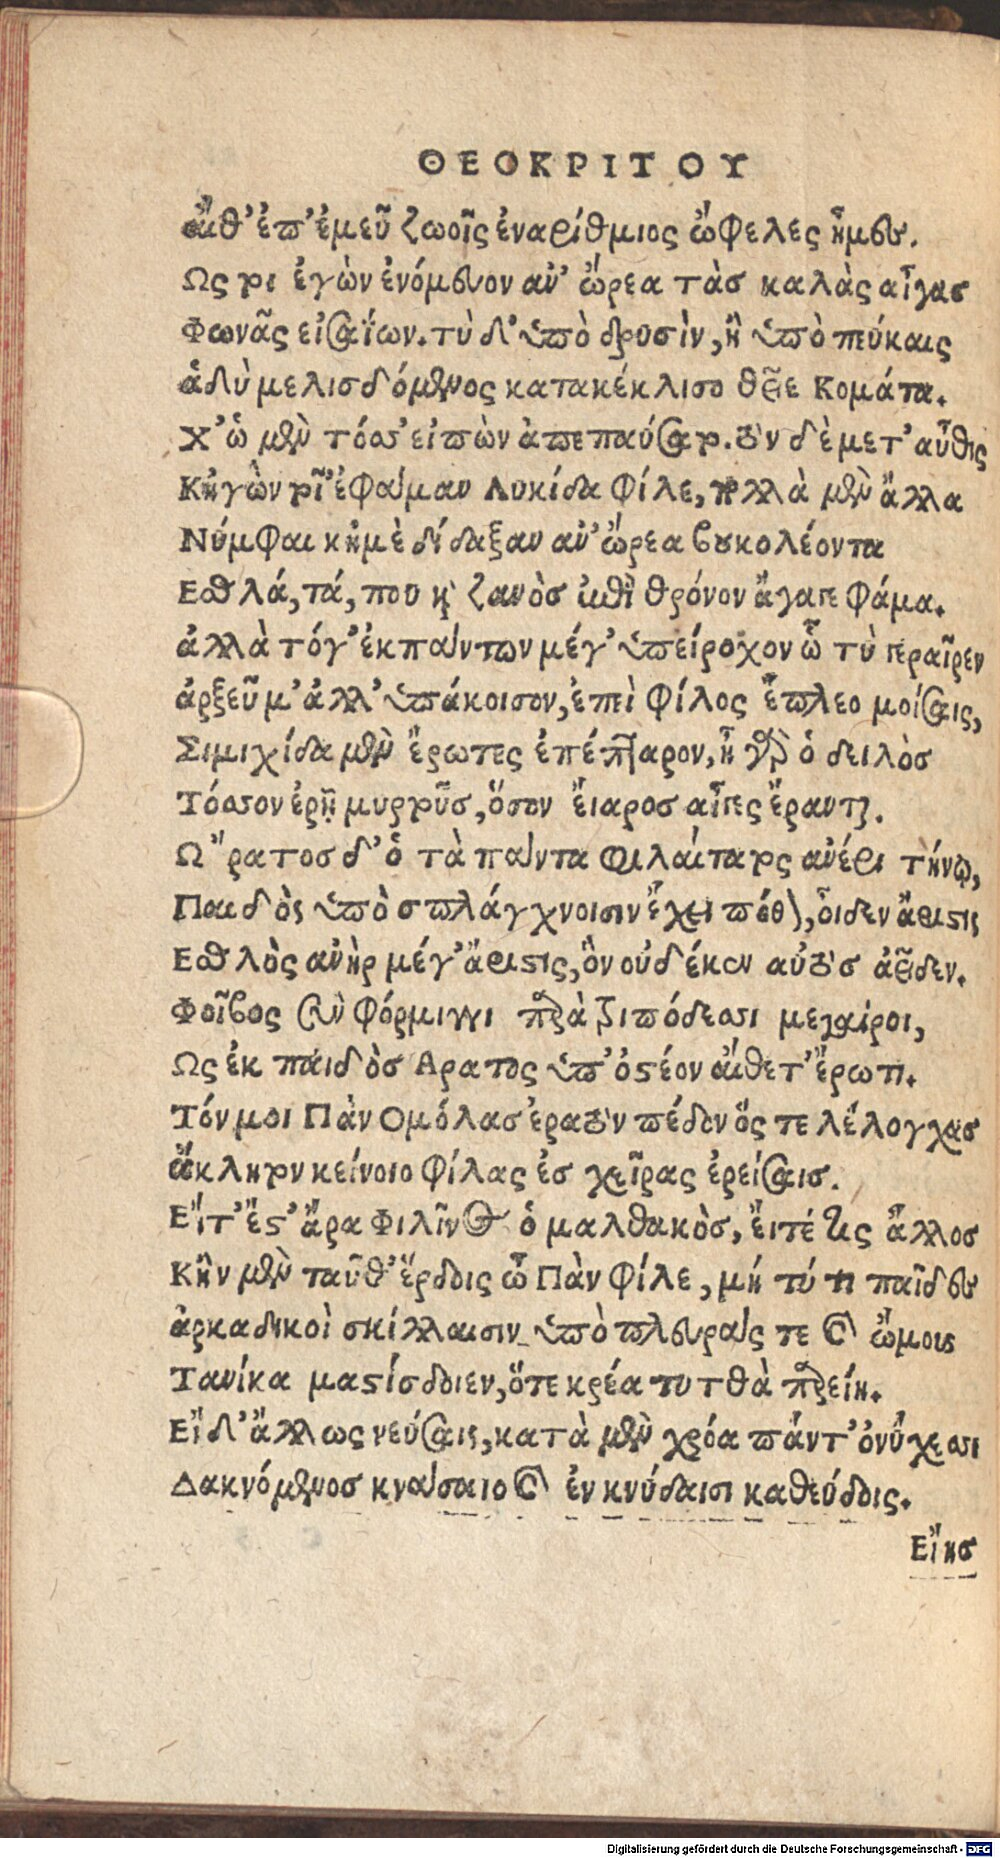 ΘΕΟΚΡΙΤΟΥ
αἴθ' ἐπ' ἐμεῦ ζωοῖς ἐναρίθμιος ὤφελες ἦμεν.
Ως τοι ἐγὼν ἐνόμευον ἀν' ὤρεα τὰσ καλὰς αἶγασ
Φωνᾶς εἰσαΐων. τὺ δ' ὑπὸ δρυσὶν, ἢ ὑπὸ πεύκαις
ἁδὺ μελισδόμενος κατακέκλισο θεῖε Κομάτα.
Χ' ὠ μὲν τόσσ' εἰπὼν ἀπεπαύσατο. τὸν δὲ μετ' αὖθις
Κἠγὼν τοῖ' ἐφάμαν Λυκίδα φίλε, πολλὰ μὲν ἄλλα
Νύμφαι κἠμὲ δίδαξαν ἀν' ὤρεα βουκολέοντα
Εσθλά, τά, που καὶ ζανὸσ ἐπὶ θρόνον ἄγαγε φάμα.
ἀλλὰ τόγ' ἐκ πάντων μέγ' ὑπείροχον ὧ τὺ γεραῖρεν
ἀρξεῦμ' ἀλλ' ὑπάκοισον, ἐπεὶ φίλος ἔπλεο μοίσαις,
Σιμιχίδα μὲν ἔρωτες ἐπέπταρον, ἦ γὰρ ὁ δειλὸσ
Τόσσον ἐρῇ μυρτοῦσ, ὅσον εἴαροσ αἶγες ἔραντι.
Ω῎ρατοσ δ' ὁ τὰ πάντα φιλαίτατος ἀνέρι τήνῳ,
Παιδὸς ὑπὸ σπλάγχνοισιν ἔχει πόθον, οἶδεν ἄριστις
Εσθλὸς ἀνὴρ μέγ' ἄριστις, ὃν οὐδέ κεν αὐτὸσ ἀείδεν.
Φοῖβος σὺν φόρμιγγι παρὰ τριπόδεσσι μεγαίροι,
Ως ἐκ παιδὸσ Αρατος ὑπ' ὀστέον αἴθετ' ἔρωτι.
Τόν μοι Πὰν Ομόλασ ἐρατὸν πέδον ὅς τε λέλογχασ
ἄκλητον κείνοιο φίλας ἐσ χεῖρας ἐρείσαισ.
Εἴτ' ἔστ' ἄρα Φιλῖνος ὁ μαλθακὸσ, εἴτέ τις ἄλλοσ
Κἢν μὲν ταῦθ' ἕρδοις ὦ Πὰν φίλε, μή τύ τι παῖδεσ
ἀρκαδικοὶ σκίλλαισιν ὑπὸ πλευράς τε καὶ ὤμοις
Τανίκα μαστίσδοιεν, ὅτε κρέα τυτθὰ παρείη.
Εἴ δ' ἄλλως νεύσαις, κατὰ μὲν χρόα πάντ' ὀνύχεσσι
Δακνόμενοσ κνάσαιο καὶ ἐν κνύδαισι καθεύδοις.
Εἴησ
Digitalisierung gefördert durch die Deutsche Forschungsgemeinschaft - DFG